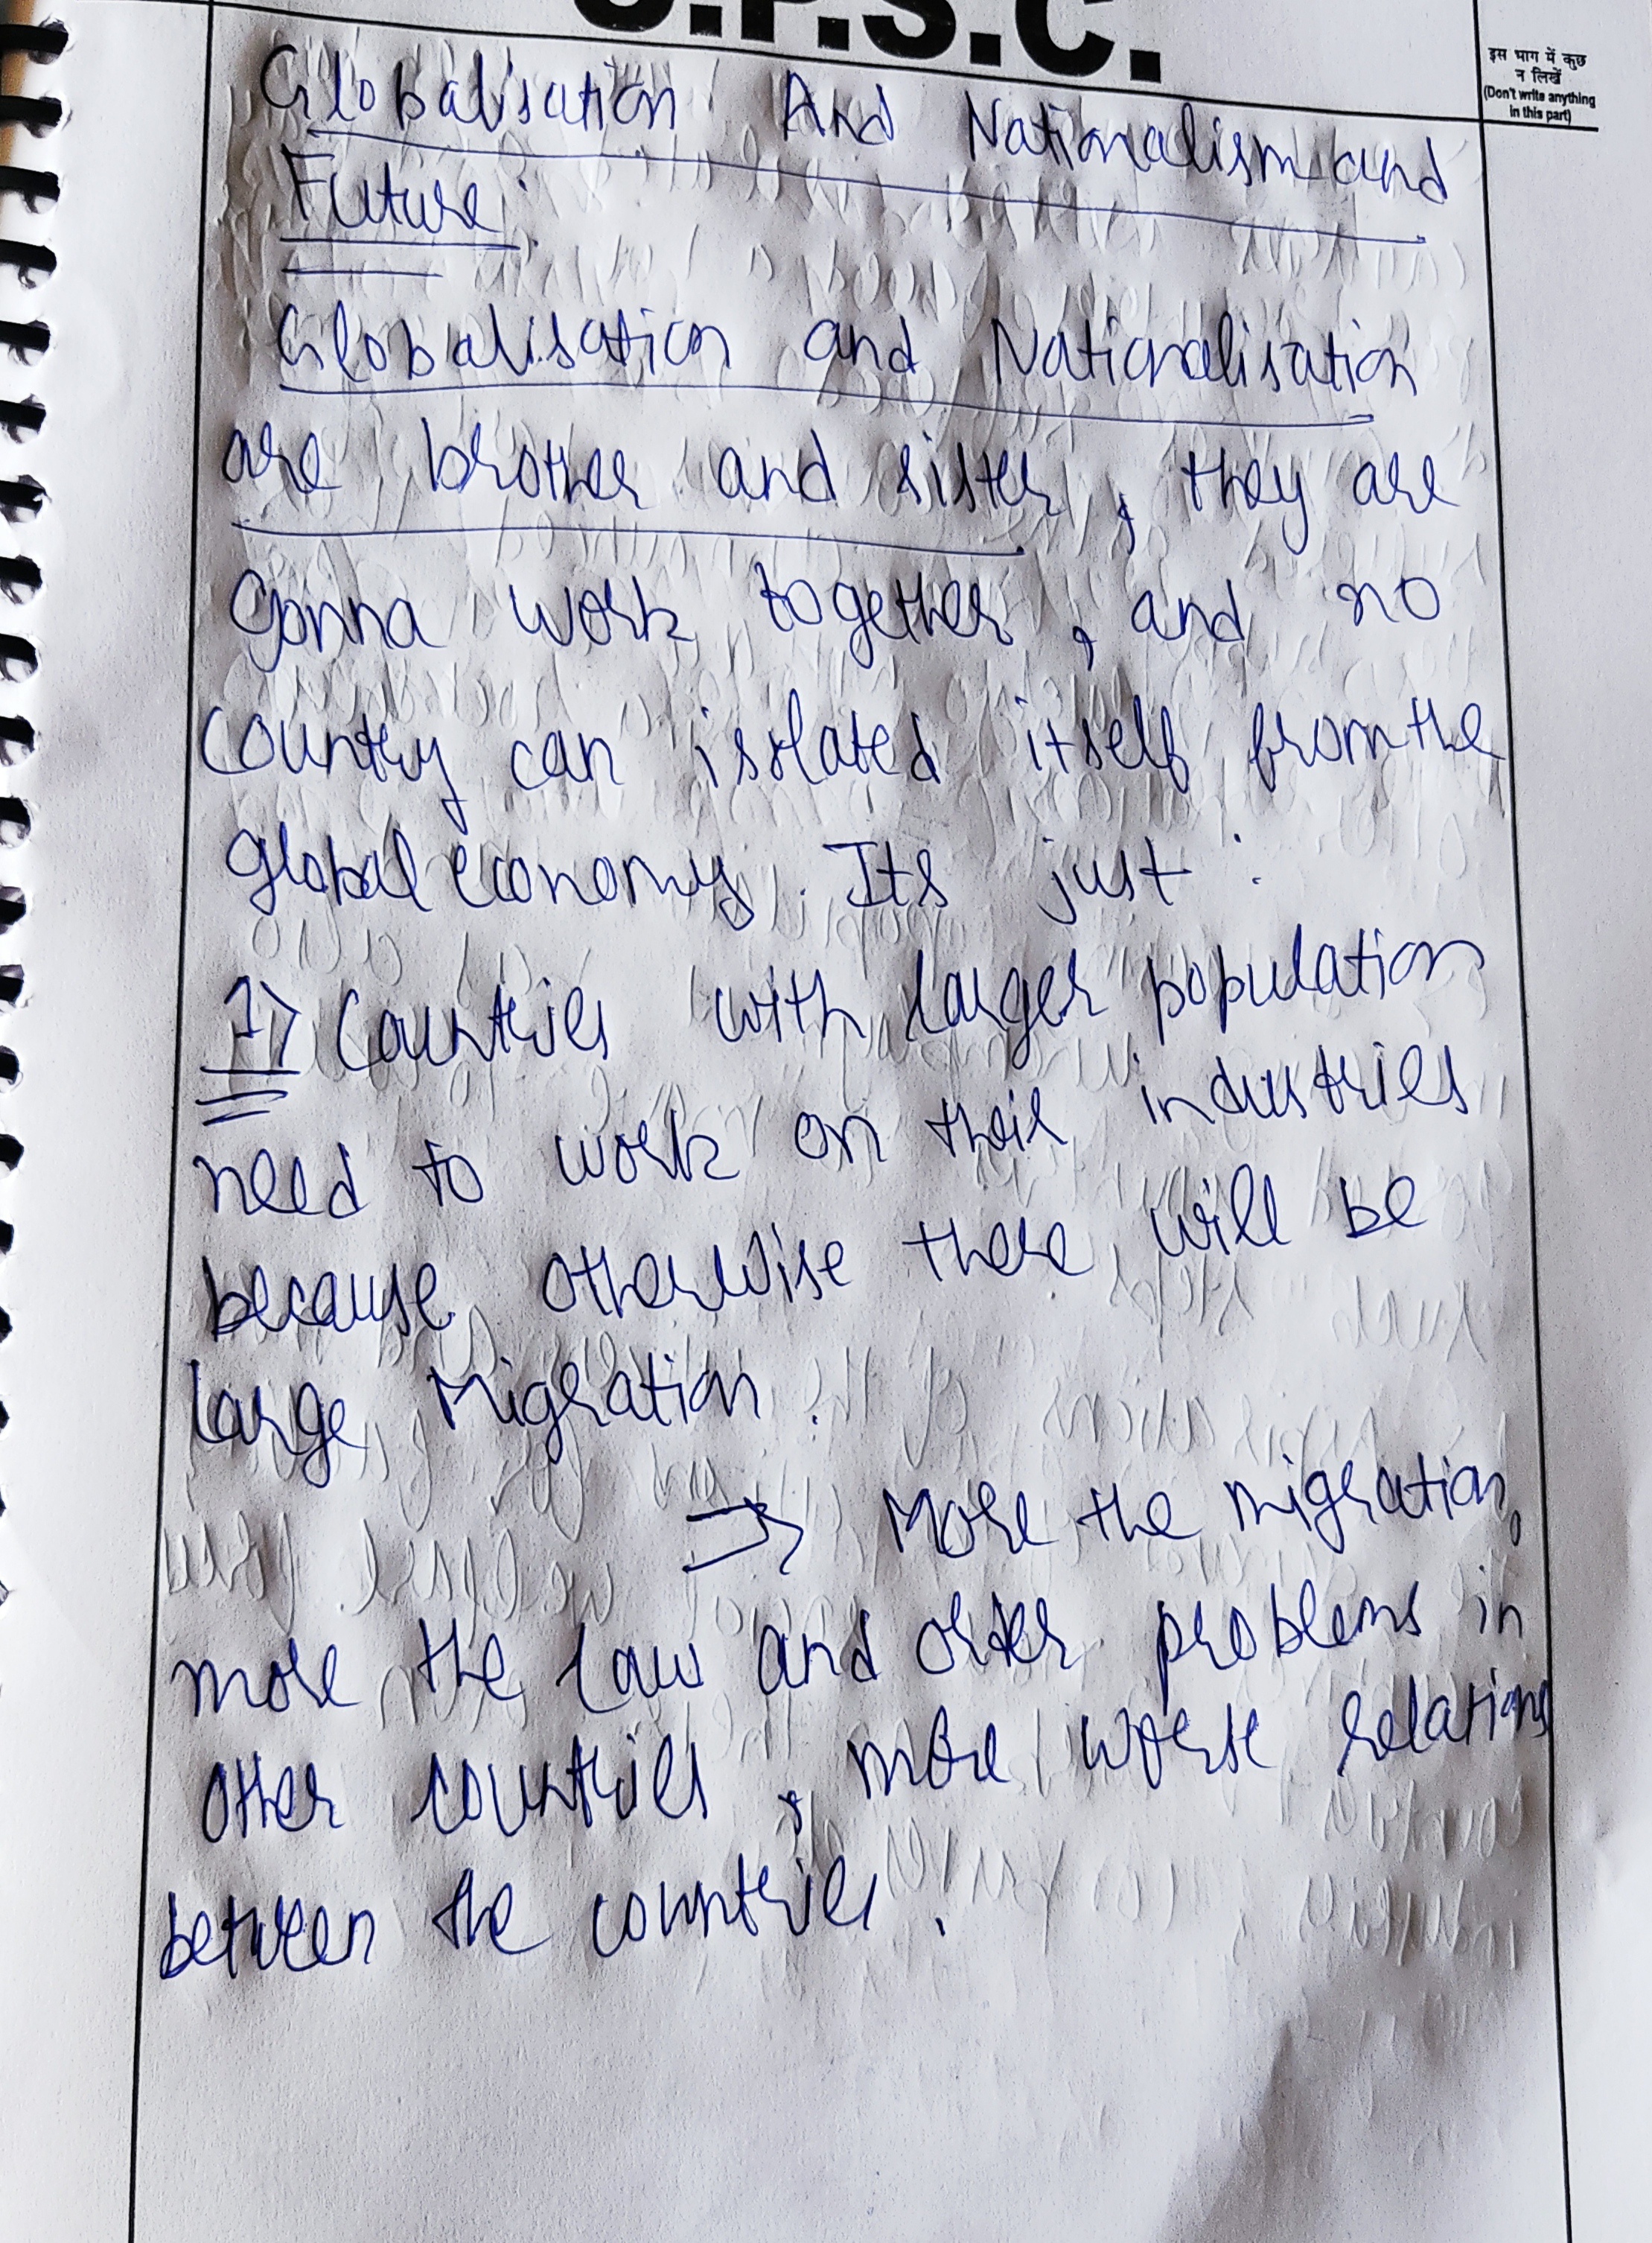 U.P.S.C.
इस भाग में कुछ
न लिखें
(Don't write anything
in this part)
Globalisation And Nationalism and
Future :
Globalisation and Nationalisation
are brother and sister, they are
gonna work together, and no
country can isolated itself from the
global economy. Its just :
1) Countries with larger population
need to work on their industries
because otherwise there will be
large Migration.
⇒ More the migration,
more the law and order problems in
other countries, more worse relations
between the countries.